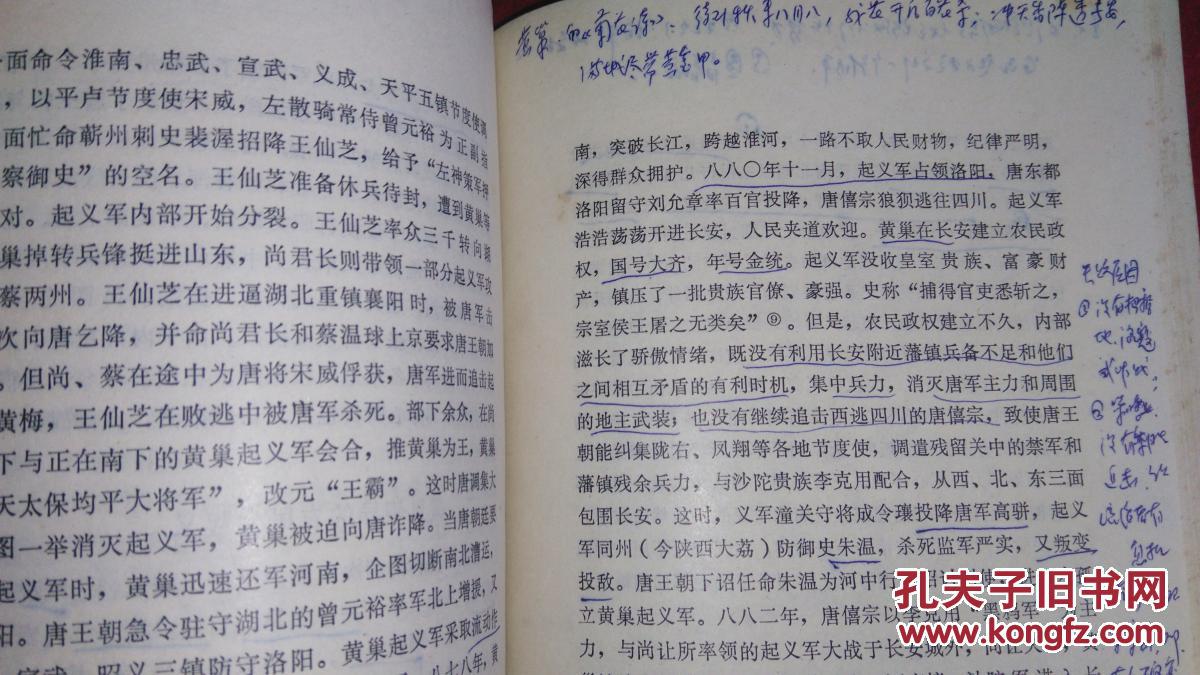 一面命令淮南、忠武、宣武、义成、天平五镇节度使
，以平卢节度使宋威，左散骑常侍曾元裕为正副指
面忙命蕲州刺史裴渥招降王仙芝，给予“左神策军押
察御史”的空名。王仙芝准备休兵待封，遭到黄巢等
对。起义军内部开始分裂。王仙芝率众三千转向
巢掉转兵锋挺进山东，尚君长则带领一部分起义军攻
蔡两州。王仙芝在进逼湖北重镇襄阳时，被唐军击
次向唐乞降，并命尚君长和蔡温球上京要求唐王朝加
。但尚、蔡在途中为唐将宋威俘获，唐军进而追击起
黄梅，王仙芝在败逃中被唐军杀死。部下余众，在尚
下与正在南下的黄巢起义军会合，推黄巢为王，黄巢
天太保均平大将军”，改元“王霸”。这时唐调集大
图一举消灭起义军，黄巢被迫向唐诈降。当唐朝廷要
起义军时，黄巢迅速还军河南，企图切断南北漕运，
阳。唐王朝急令驻守湖北的曾元裕率军北上增援，又
宣武、昭义三镇防守洛阳。黄巢起义军采取流动作
八七八年，黄
黄巢的《菊花诗》：待到秋来八月八，我花开后百花杀；冲天香阵透长安，
满城尽带黄金甲。
南，突破长江，跨越淮河，一路不取人民财物，纪律严明，
深得群众拥护。八八〇年十一月，起义军占领洛阳。唐东都
洛阳留守刘允章率百官投降，唐僖宗狼狈逃往四川。起义军
浩浩荡荡开进长安，人民夹道欢迎。黄巢在长安建立农民政
权，国号大齐，年号金统。起义军没收皇室贵族、富豪财
产，镇压了一批贵族官僚、豪强。史称“捕得官吏悉斩之，
宗室侯王屠之无类矣”⑨。但是，农民政权建立不久，内部
滋长了骄傲情绪，既没有利用长安附近藩镇兵备不足和他们
之间相互矛盾的有利时机，集中兵力，消灭唐军主力和周围
的地主武装；也没有继续追击西逃四川的唐僖宗，致使唐王
朝能纠集陇右、凤翔等各地节度使，调遣残留关中的禁军和
藩镇残余兵力，与沙陀贵族李克用配合，从西、北、东三面
包围长安。这时，义军潼关守将成令瓌投降唐军高骈，起义
军同州（今陕西大荔）防御史朱温，杀死监军严实，又叛变
投敌。唐王朝下诏任命朱温为河中行
立黄巢起义军。八八二年，唐僖宗以李克用“黑鸦军”为主
力，与尚让所率领的起义军大战于长安城外，尚让大
孔夫子旧书网
KONGFZ.COM